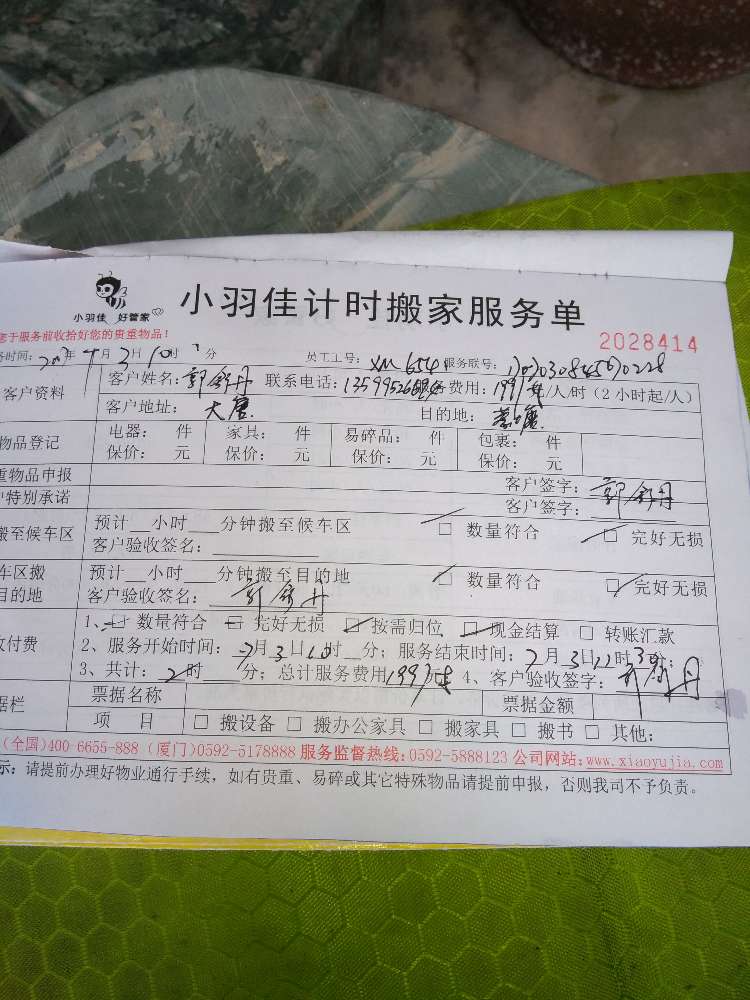 小羽佳 好管家
小羽佳计时搬家服务单
于服务前收拾好您的贵重物品!
2028414
时间: 年 月 3日 10时 分 员工工号: XM 654 服务联号:
客户资料 客户姓名: 郭舒丹 联系电话: 服务费用: 199 /人/时 (2小时起/人)
客户地址: 大唐 目的地:
物品登记 电器: 件 家具: 件 易碎品: 件 包裹: 件
保价: 元 保价: 元 保价: 元 保价: 元
重物品申报 客户签字: 郭舒丹
特别承诺 客户签字:
搬至候车区 预计__小时___分钟搬至候车区 □ 数量符合 □ 完好无损
客户验收签名:
车区搬目的地 预计__小时___分钟搬至目的地 □ 数量符合 □ 完好无损
客户验收签名: 郭舒丹
付费 1、□ 数量符合 □ 完好无损 □ 按需归位 □ 现金结算 □ 转账汇款
2、服务开始时间: 7月3日10时__分; 服务结束时间: 7月3日12时30分;
3、共计: 2时___分; 总计服务费用199元 4、客户验收签字: 郭舒丹
据栏 票据名称 票据金额
项 目 □ 搬设备 □ 搬办公家具 □ 搬家具 □ 搬书 □ 其他:
(全国)400-6655-888 (厦门)0592-5178888 服务监督热线:0592-5888123 公司网站:www.xiaoyujia.com
示: 请提前办理好物业通行手续, 如有贵重、易碎或其它特殊物品请提前申报, 否则我司不予负责。